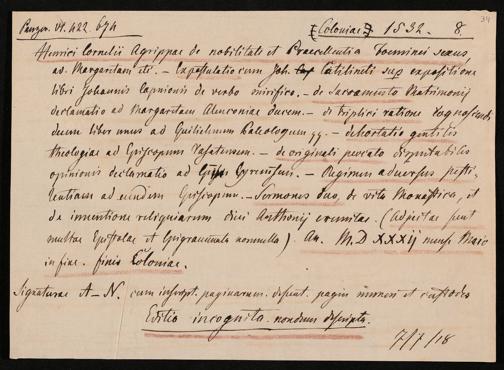 Panzer. VI. 422. 674 [Coloniae] 1532. 8. 34
Henrici Cornelii Agrippae de nobilitate et Praecellentia Foeminei sexus,
ad Margaretam etc. – Expostulatio cum Joh. Catilineti sup expositione
libri Johannis Capnionis de verbo mirifico. – de Sacramento Matrimonij
declamatio ad Margaretam Alenconiae ducem. – de triplici ratione cognoscendi
deum liber unus ad Guilielmum Paleologum – dehortatio gentilis
theologiae ad Episcopum Vasatensem. – de originali peccato disputabilis
opinionis declamatio ad Episc Cyrenensem. – Regimen adversus pesti-
lentiam ad eundem Episcopum. – Sermones duo, de vita Monastica, et
de inventione reliquiarum divi Anthonij eremitae. (Adjectae sunt
multae Epistolae et Epigrammata nonnulla). An. M.D XXXij mense Maio
in fine. finis Coloniae.
Signaturae A–N. cum inscript. paginarum. desunt. pagin numeri et custodes
Editio incognita nondum descripta.
7/7/18